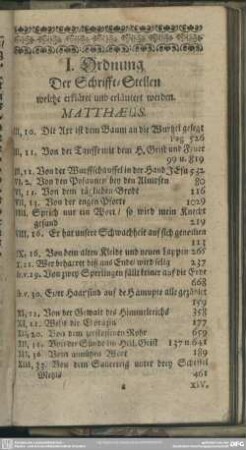 I. Ordnung
Der Schrifft-Stellen
welche erkläret und erläutert werden.
MATTHÆUS.
III, 10. Die Axt ist dem Baum an die Wurtzel gelegt
pag 526
III, 11. Von der Tauffe mit dem H. Geist und Feuer
99 u. 819
III, 12. Von der Wurffschauffel in der Hand JEsu 532
VI, 2. Von den Posaunen bey den Almosen 80
VI, 11. Von dem täglichen Brodt 116
VII, 13. Von der engen Pforte 1029
VIII, Sprich nur ein Wort / so wird mein Knecht
gesund 219
Er hat unsere Schwachheit auf sich genommen
113
IX, 16. Von dem alten Kleide und neuen Lappen 267
X, 22. Wer beharret biß ans Ende wird selig 237
b. v. 29. Von zwey Sperlingen fällt keiner auf die Erde
668
b. v. 30. Eure Haar sind auf de Haeupte alle gezählet
159
XI, 12. Von der Gewalt des Himmelreichs 358
XI, 21. Wehe dir Chorazin 177
XII, 20. Von dem zerstossenen Rohr 659
XII, 31. Von der Sünde im Heil. Geist 137 u. 641
XII, 36. Vom unnützen Wort 189
XIII, 33. Von dem Sauerteig unter drey Scheffel
Mehls 461
a XIV.